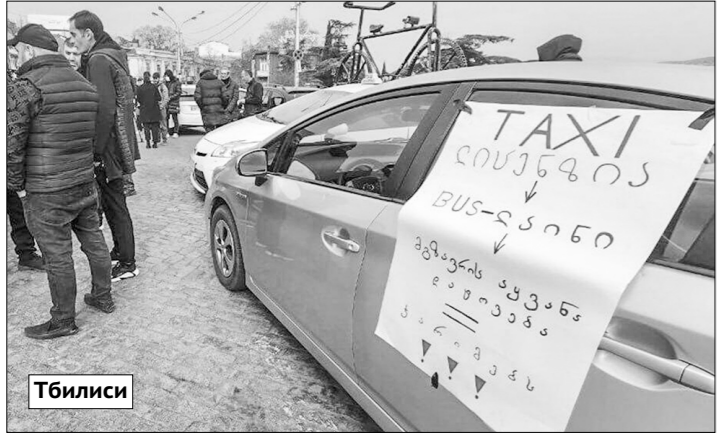 TAXI
ლიცენზია
↓
BUS-ლაინი
↓
მგზავრის აყვანა
დატოვება
=
ჯარიმებს
!!!
Тбилиси